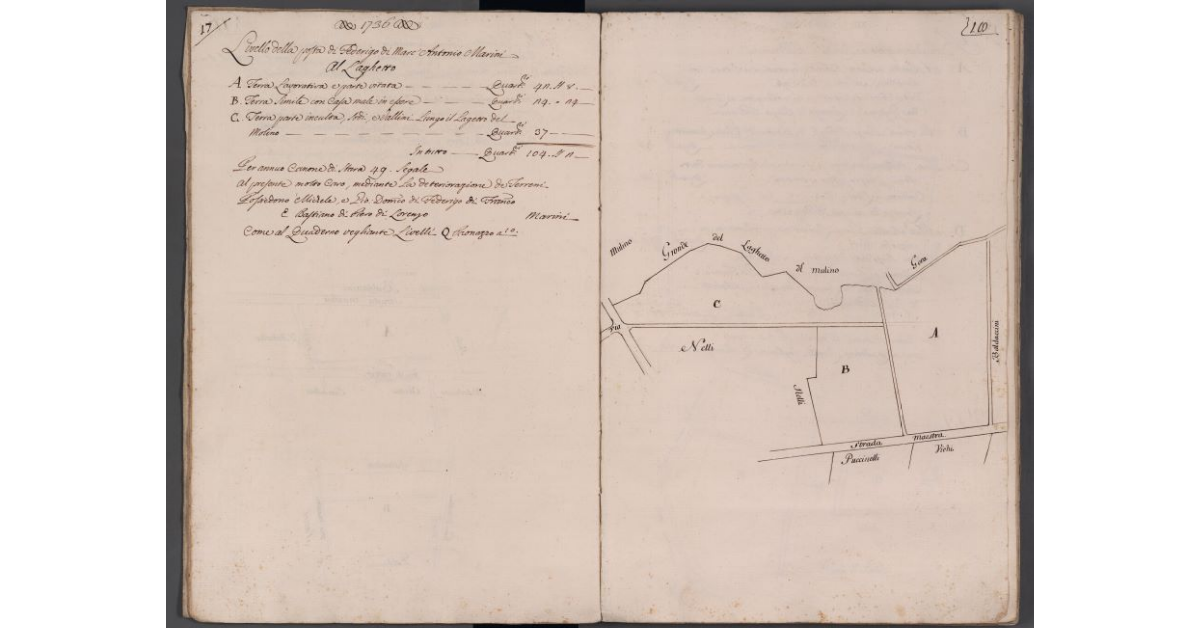 17
1736
Livello della posta di Federigo di Marc Antonio Marini
Al Laghetto
A. Terra Lavorativa e parte vitata Quard.
B. Terra Simile con Casa male in essere Quard.
C. Terra parte inculta, Lungo il Lagetto del
Molino Quard. 37
In tutto Quard. 104
Per annuo Canone di Stara 49. Segale
Al presente molto Caro, mediante La deterioragione de Terreni
Possedono Michele, e Pio Domco di Federigo di Franco
E Bastiano di Piero di Lorenzo Marini
Come al Quaderno vegliante Livelli
Molino
Grande
del
Laghetto
di
Molino
Gora
C
A
Via
Nelli
B
Nelli
Balduccini
Strada Maestra
Puccinelli
Vichi